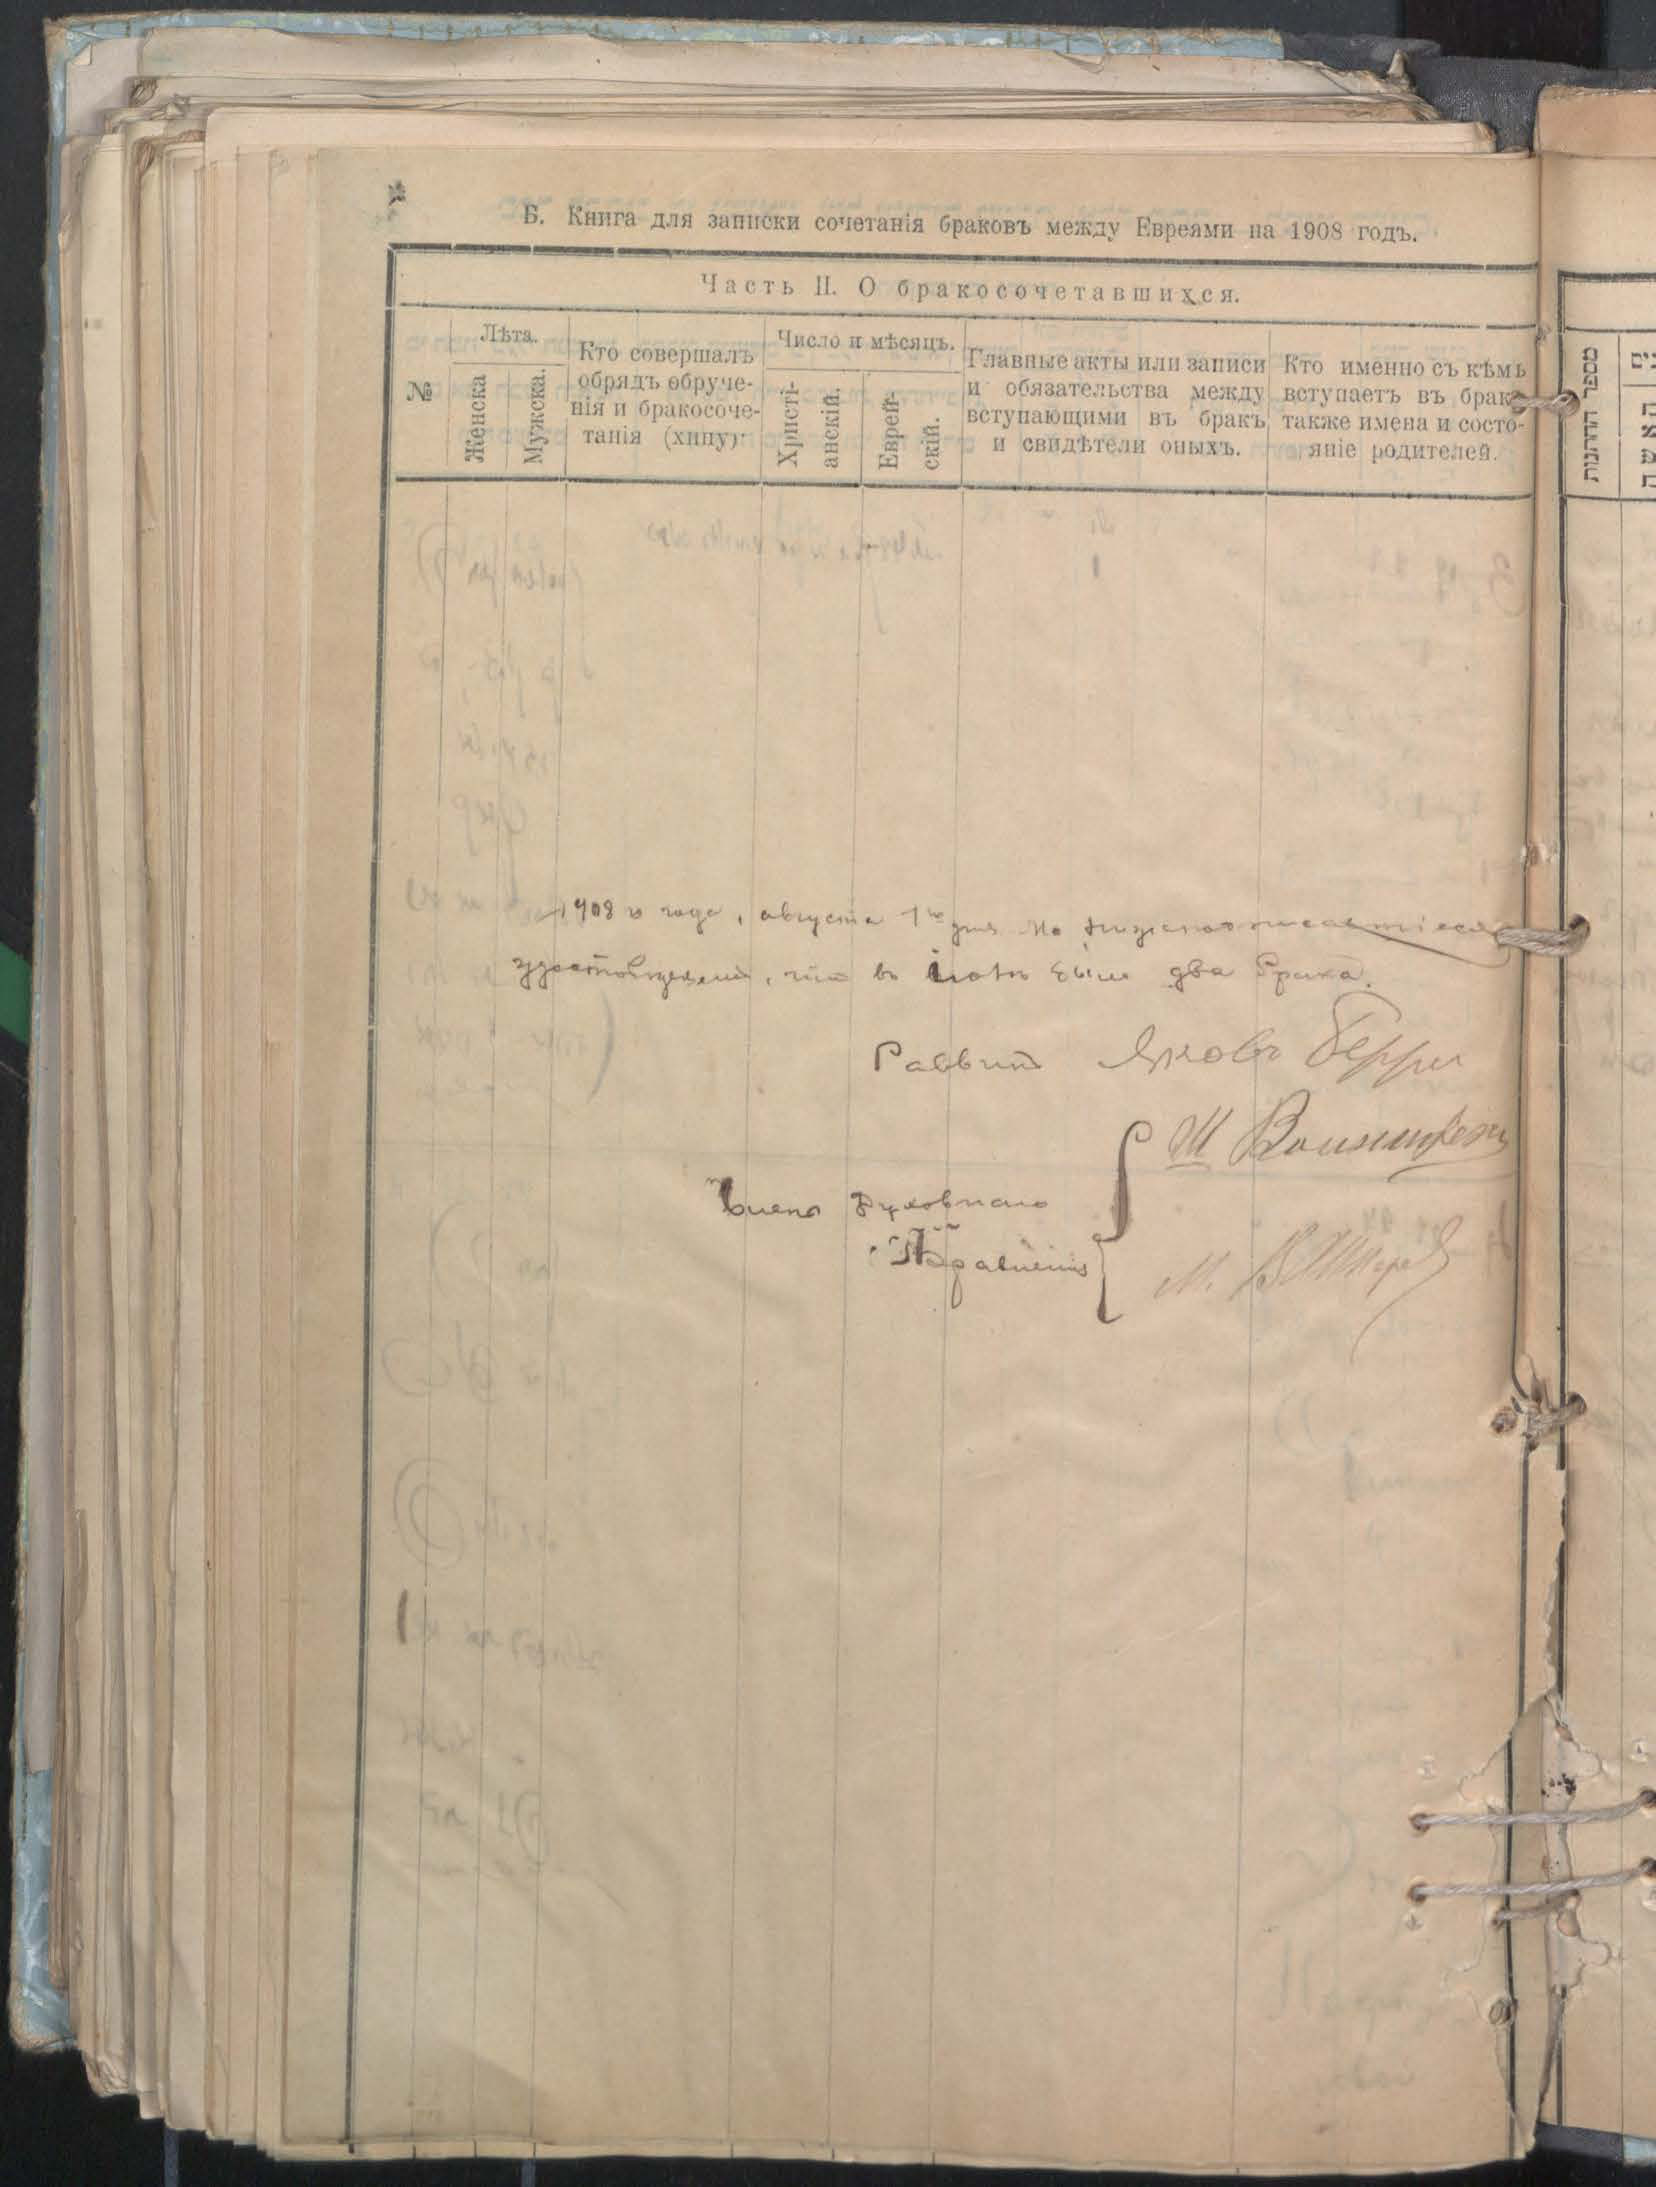 Б. Книга для записки сочетанія браковъ между Евреями на 1908 годъ.
Часть II. О бракосочетавшихся.
№
Лѣта.
Женска
Мужска.
Кто совершалъ
обрядъ обруче-
нія и бракосоче-
танія (хипу):
Число и мѣсяцъ.
Христі-
анскій.
Еврей-
скій.
Главные акты или записи
и обязательства между
вступающими въ бракъ
и свидѣтели оныхъ.
Кто именно съ кѣмъ
вступаетъ въ бракъ
также имена и состо-
яніе родителей.
מספר החתונות
האשה
1908 го года, августа 1го дня мы нижеподписавшіеся
удостовѣряемъ, что въ іюлѣ были два брака.
Раввинъ Яковъ
Ш
Члены Духовнаго
Правленія
М.